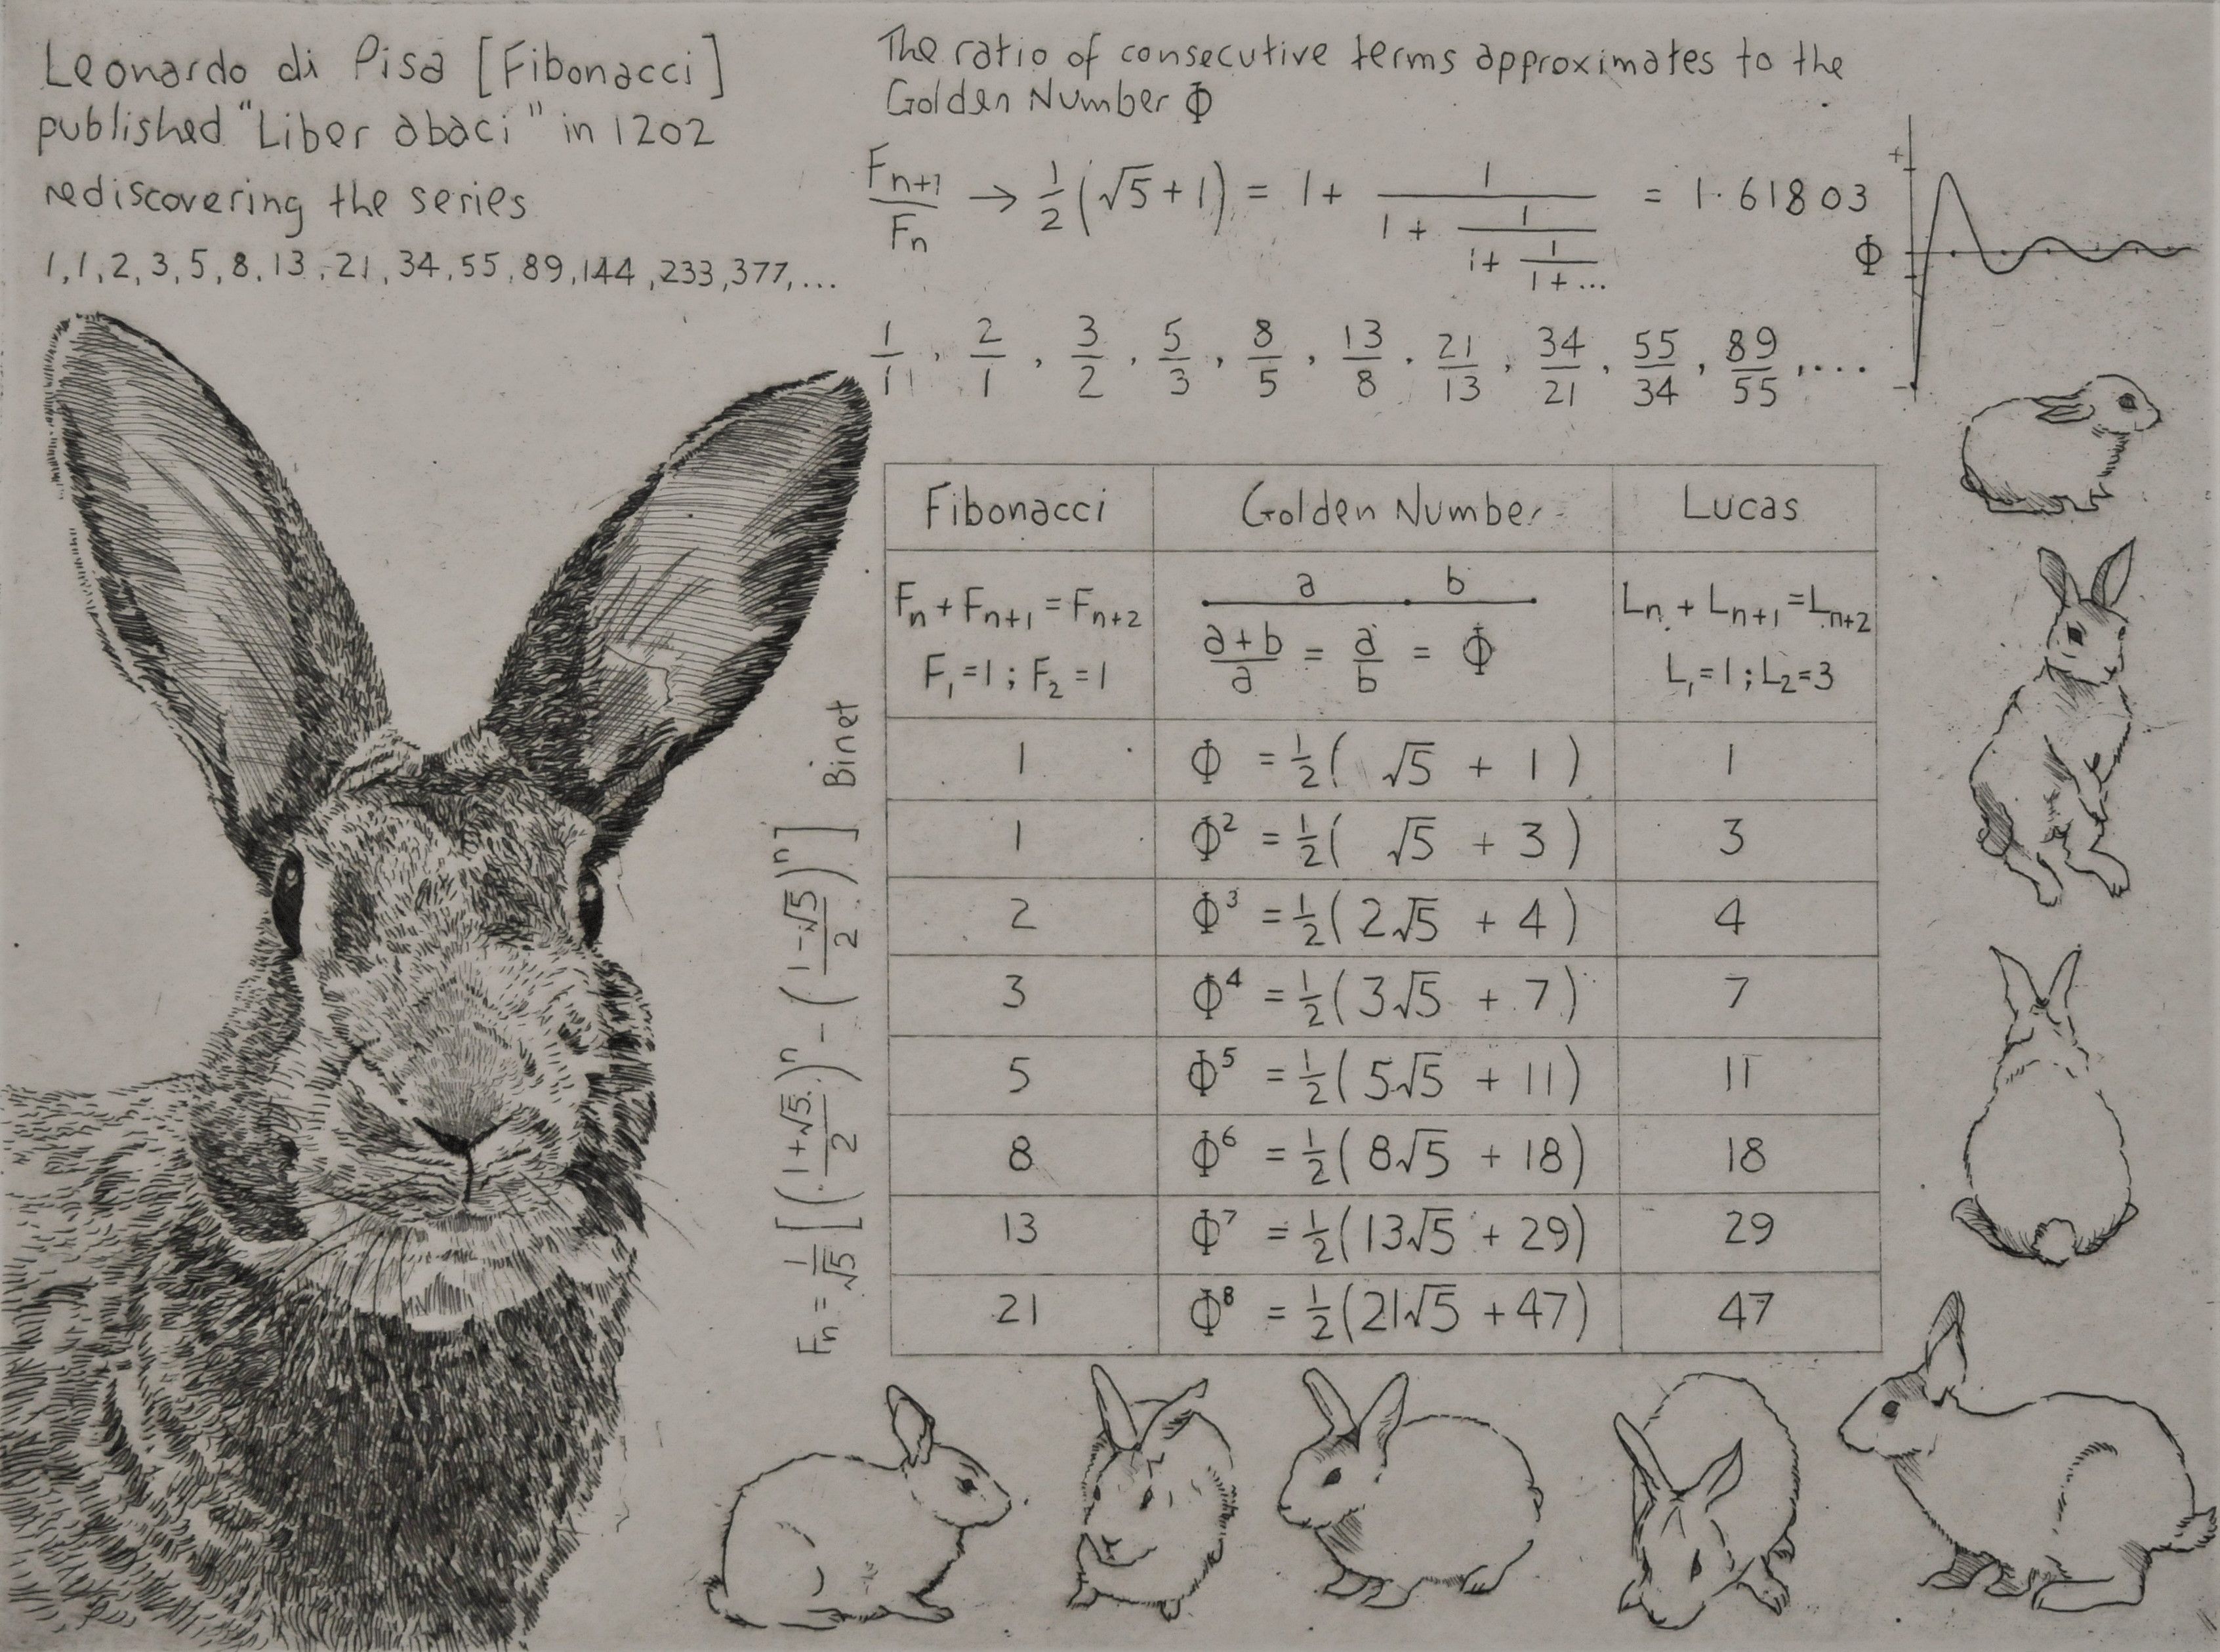 Leonardo di Pisa [Fibonacci]
published "Liber abaci" in 1202
rediscovering the series
1,1,2,3,5,8,13,21,34,55,89,144,233,377,...
The ratio of consecutive terms approximates to the
Golden Number Φ
Fn+1/Fn → 1/2(√5+1) = 1+1/(1+1/(1+1/(1+...))) = 1·61803
+
Φ
-
1/1, 2/1, 3/2, 5/3, 8/5, 13/8, 21/13, 34/21, 55/34, 89/55, ....
Fibonacci Golden Number Lucas
a b
Fn + Fn+1 = Fn+2 (a+b)/a = a/b = Φ Ln + Ln+1 = Ln+2
F1=1 ; F2=1 L1=1 ; L2=3
1 Φ = 1/2( √5 + 1 ) 1
1 Φ² = 1/2( √5 + 3 ) 3
2 Φ³ = 1/2( 2√5 + 4 ) 4
3 Φ⁴ = 1/2( 3√5 + 7 ) 7
5 Φ⁵ = 1/2( 5√5 + 11 ) 11
8 Φ⁶ = 1/2( 8√5 + 18 ) 18
13 Φ⁷ = 1/2( 13√5 + 29 ) 29
21 Φ⁸ = 1/2( 21√5 + 47 ) 47
Fn = 1/√5 [ ((1+√5)/2)ⁿ - ((1-√5)/2)ⁿ ] Binet